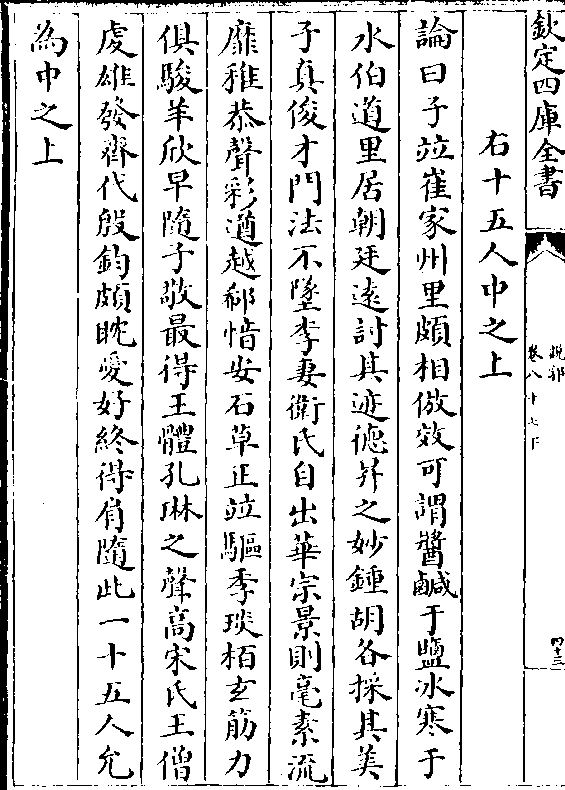 欽定四庫全書
說郛
卷八十七下
四十三
右十五人中之上
論曰子竝崔家州里頗相倣效可謂醬鹹于鹽冰寒于
水伯道里居朝廷遠討其迹德昇之妙鍾胡各採其美
子真俊才門法不墜李妻衛氏自出華宗景則毫素流
靡稚恭聲彩遒越郗愔安石草正竝驅季琰栢玄筋力
俱駿羊欣早隨子敬最得王體孔琳之聲高宋氏王僧
虔雄發齊代殷鈞頗躭愛好終得肩隨此一十五人允
為中之上